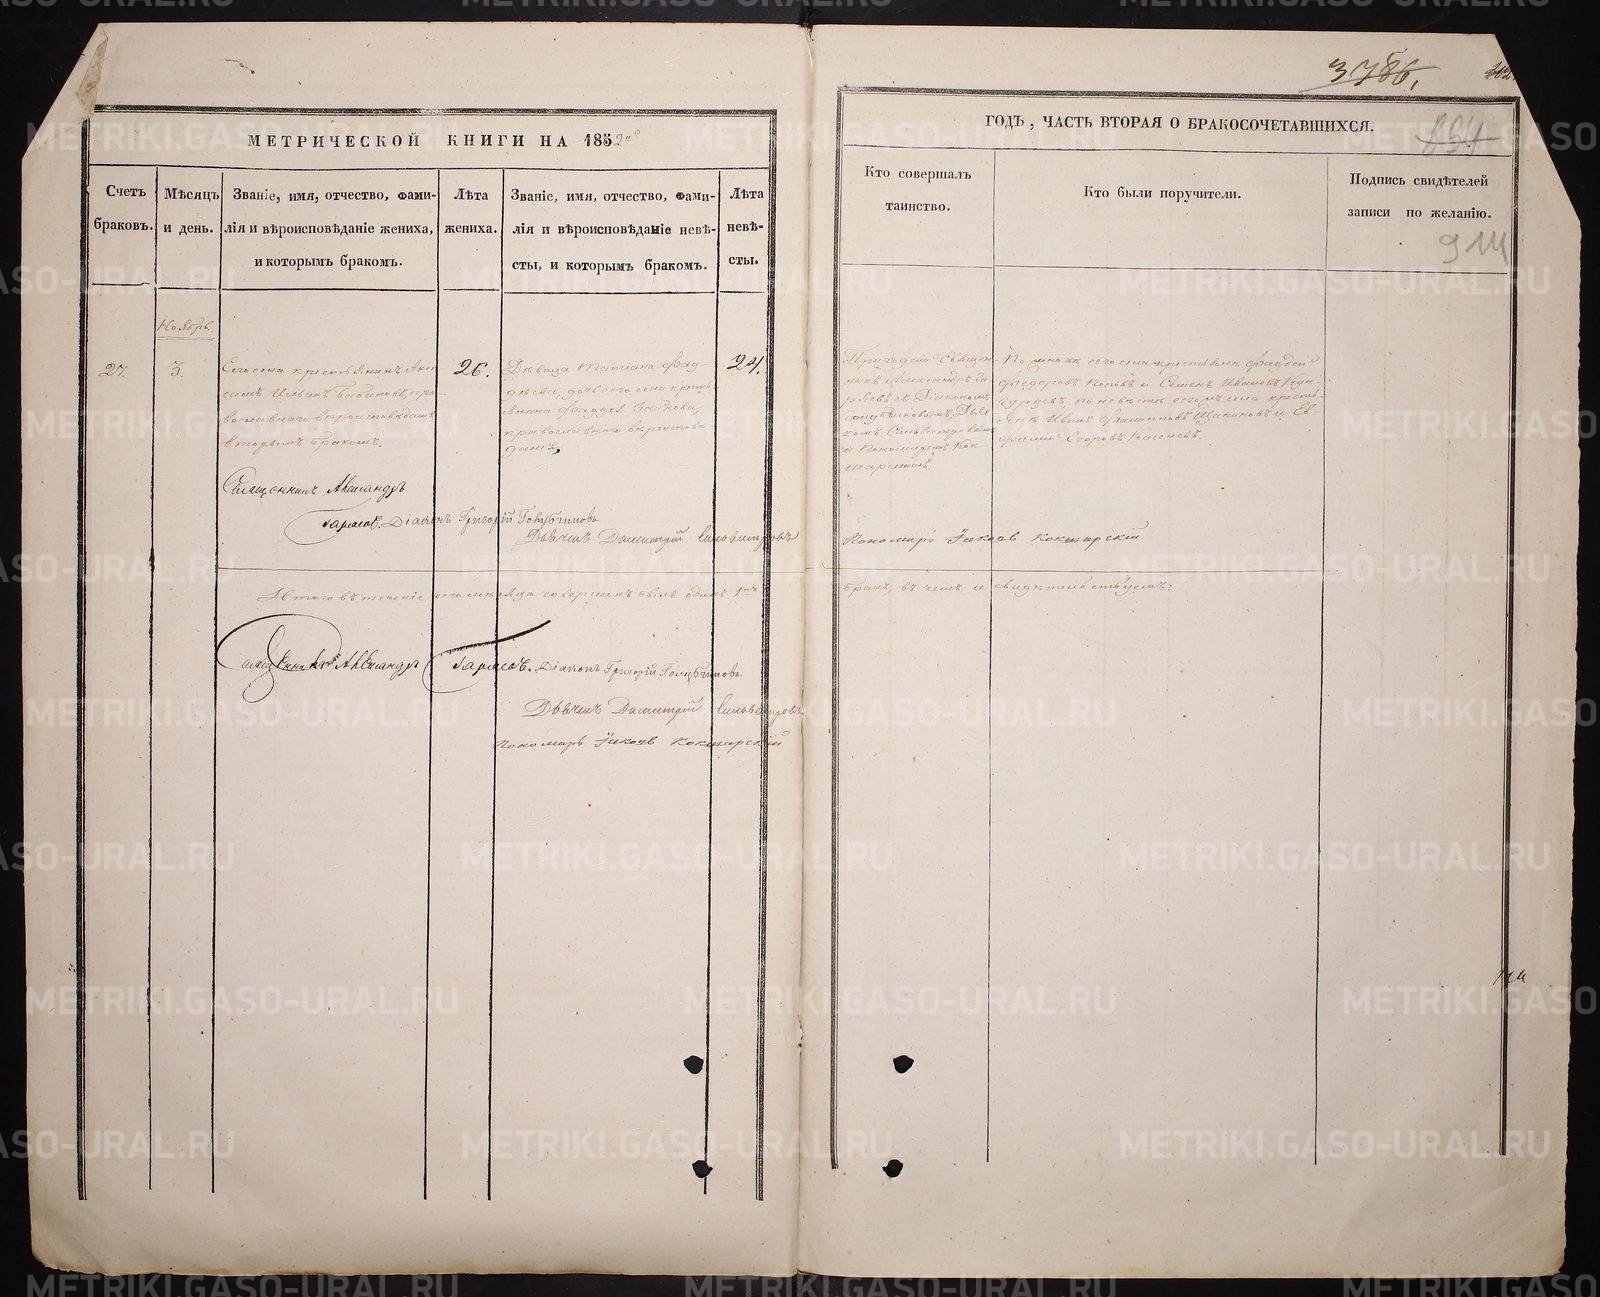 3786.
МЕТРИЧЕСКОЙ КНИГИ НА 1852го
ГОДЪ, ЧАСТЬ ВТОРАЯ О БРАКОСОЧЕТАВШИХСЯ.
Счетъ
браковъ.
Мѣсяцъ
и день.
Званіе, имя, отчество, фами-
лія и вѣроисповѣданіе жениха,
и которымъ бракомъ.
Лѣта
жениха.
Званіе, имя, отчество, фами-
лія и вѣроисповѣданіе невѣ-
сты, и которымъ бракомъ.
Лѣта
невѣ-
сты.
Кто совершалъ
таинство.
Кто были поручители.
Подпись свидѣтелей
записи по желанію.
Ноябрь
27.
3.
Сего села крестьянинъ
Ильинъ
православнаго вѣроисповѣданія
вторымъ бракомъ.
26.
Дѣвица Татіана Фад-
дѣева, дочь сего села кресть
янина Фаддея
православнаго вѣроисповѣ
данія,
24.
Приходскій Священ-
никъ Александръ
съ Діакономъ
Голубчиковымъ Дьяч
комъ Сильвестровымъ
и Пономаремъ Кок
шарскимъ
По женихѣ сего села крестьяне Фаддей
Федоровъ Поповъ и Семенъ Ивановъ
по невѣстѣ сего села кресть
яне Иванъ Филипповъ и Ев
Егоровъ
Священникъ Александръ
Діаконъ Григорій Голубчиковъ.
Дьячекъ Димитрій Сильвестровъ
Пономарь Іаковъ Кокшарскій
Итого въ теченіе сего мѣсяца совершенъ былъ одинъ 1нъ
бракъ, въ чемъ и свидѣтельствуемъ:
Священникъ Александръ
Діаконъ Григорій Голубчиковъ.
Дьячекъ Димитрій Сильвестровъ
Пономарь Іаковъ Кокшарскій
METRIKI.GASO-URAL.RU